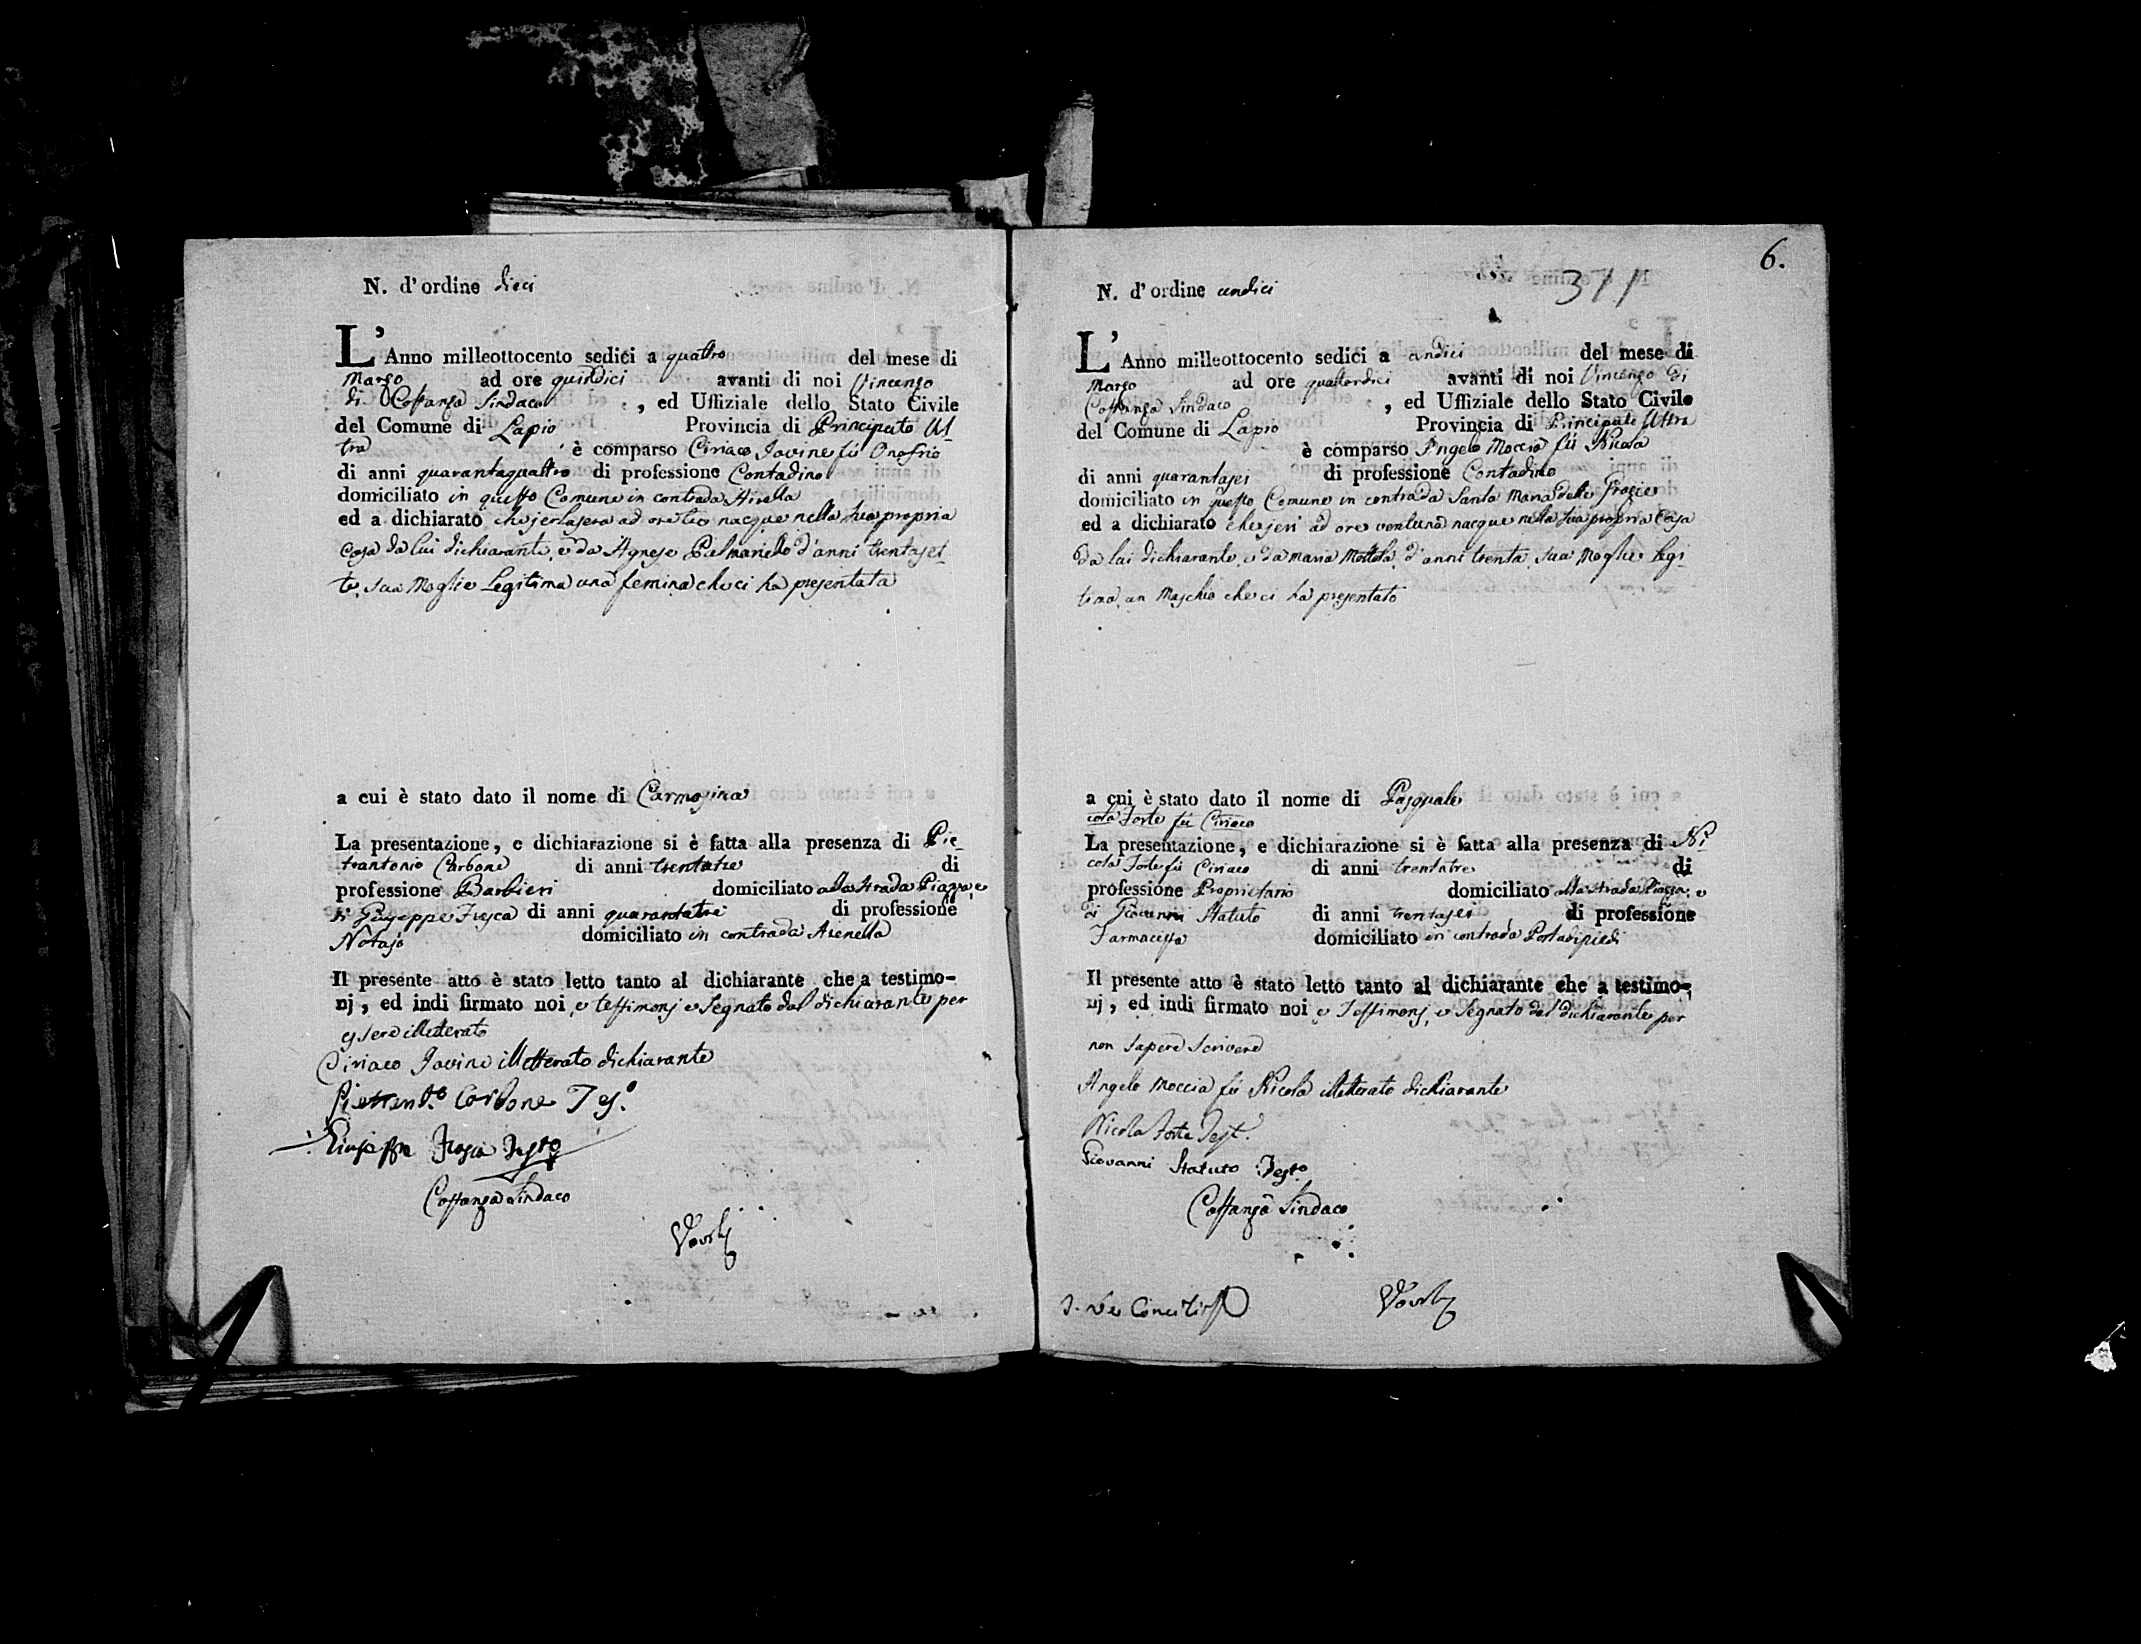 N. d'ordine dieci
L'Anno milleottocento sedici a quattro del mese di
Marzo ad ore quindici avanti di noi Vincenzo
di Costanza Sindaco , ed Uffiziale dello Stato Civile
del Comune di Lapio Provincia di Principato Ul-
tra è comparso Ciriaco Iovine fù Onofrio
di anni quarantaquattro di professione Contadino
domiciliato in questo Comune in contrada Airella
ed a dichiarato che jerlasera ad ore tre nacque nella sua propria
Casa da lui dichiarante, e da Agnese Palmariello d'anni trentaset-
te, sua Moglie Legitima una femina che ci ha presentata
a cui è stato dato il nome di Carmosina
La presentazione, e dichiarazione si è fatta alla presenza di Pie-
trantonio Carbone di anni trentatre di
professione Barbieri domiciliato alla strada Piazza, e
di Giuseppe Frasca di anni quarantatre di professione
Notajo domiciliato in contrada Arenella
Il presente atto è stato letto tanto al dichiarante che a testimo-
nj, ed indi firmato noi, e testimonj e Segnato dal dichiarante per
essere illetterato
Ciriaco Iovine illetterato dichiarante
Pietrant.º Carbone Tes.º
Giuseppe Frasca Testº
Costanza Sindaco
6.
N. d'ordine undici
371
L'Anno milleottocento sedici a undici del mese di
Marzo ad ore quattordici avanti di noi Vincenzo di
Costanza Sindaco , ed Uffiziale dello Stato Civile
del Comune di Lapio Provincia di Principato Ultra
è comparso Angelo Moccia fù Nicola
di anni quarantasei di professione Contadino
domiciliato in questo Comune in contrada Santa Maria delle Grazie
ed a dichiarato che jeri ad ore ventuna nacque nella sua propria Casa
da lui dichiarante, e da Maria Mottola, d'anni trenta, sua Moglie legi-
tima, un Maschio che ci ha presentato
a cui è stato dato il nome di Pasquale
cola Forte fù Ciriaco
La presentazione, e dichiarazione si è fatta alla presenza di Ni-
cola Forte fù Ciriaco di anni trentatre di
professione Proprietario domiciliato alla strada Piazza, e
di Giovanni Statuto di anni trentasei di professione
Farmacista domiciliato in contrada Portadipiedi
Il presente atto è stato letto tanto al dichiarante che a testimo-
nj, ed indi firmato noi, e Testimonj, e Segnato dal dichiarante per
non sapere Scrivere
Angelo Moccia fù Nicola illetterato dichiarante
Nicola Forte Test.
Giovanni Statuto Testº
Costanza Sindaco